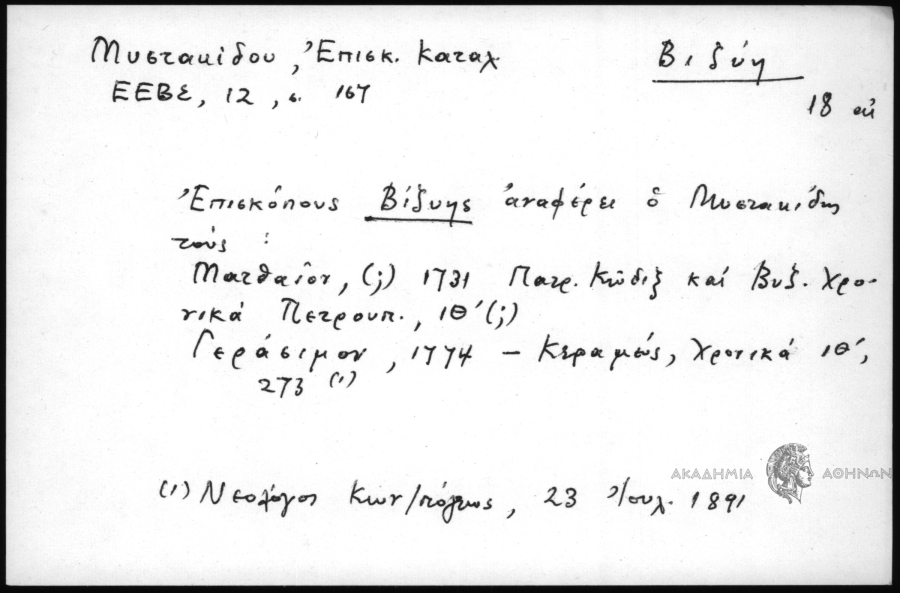 Μυστακίδου, Ἐπισκ. Καταλ. Βιζύη
ΕΕΒΣ, 12, σ. 167
18 αἰ
Ἐπισκόπους Βιζύης ἀναφέρει ὁ Μυστακίδης
τούς :
Ματθαῖον, (;) 1731 Πατρ. Κῶδιξ καί Βυζ. Χρο-
νικά Πετρουπ., ΙΘ΄ (;)
Γεράσιμον, 1774 – Κεραμεύς, Χρονικά ΙΘ΄,
273 (1)
ΑΚΑΔΗΜΙΑ ΑΘΗΝΩΝ
(1) Νεολόγος Κων/πόλεως, 23 Ἰουλ. 1891